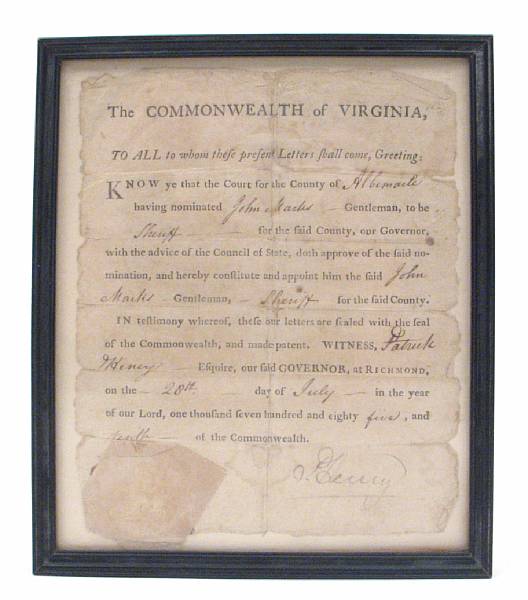 The COMMONWEALTH of VIRGINIA,
TO ALL to whom theſe preſent Letters ſhall come, Greeting:
KNOW ye that the Court for the County of Albemarle
having nominated John Marks Gentleman, to be
Sheriff for the ſaid County, our Governor,
with the advice of the Council of State, doth approve of the ſaid no-
mination, and hereby conſtitute and appoint him the ſaid John
Marks Gentleman, Sheriff for the ſaid County.
IN teſtimony whereof, theſe our letters are ſealed with the ſeal
of the Commonwealth, and made patent. WITNESS, Patrick
Henry Eſquire, our ſaid GOVERNOR, at RICHMOND,
on the 20th day of July in the year
of our Lord, one thouſand ſeven hundred and eighty five, and
tenth of the Commonwealth.
P. Henry